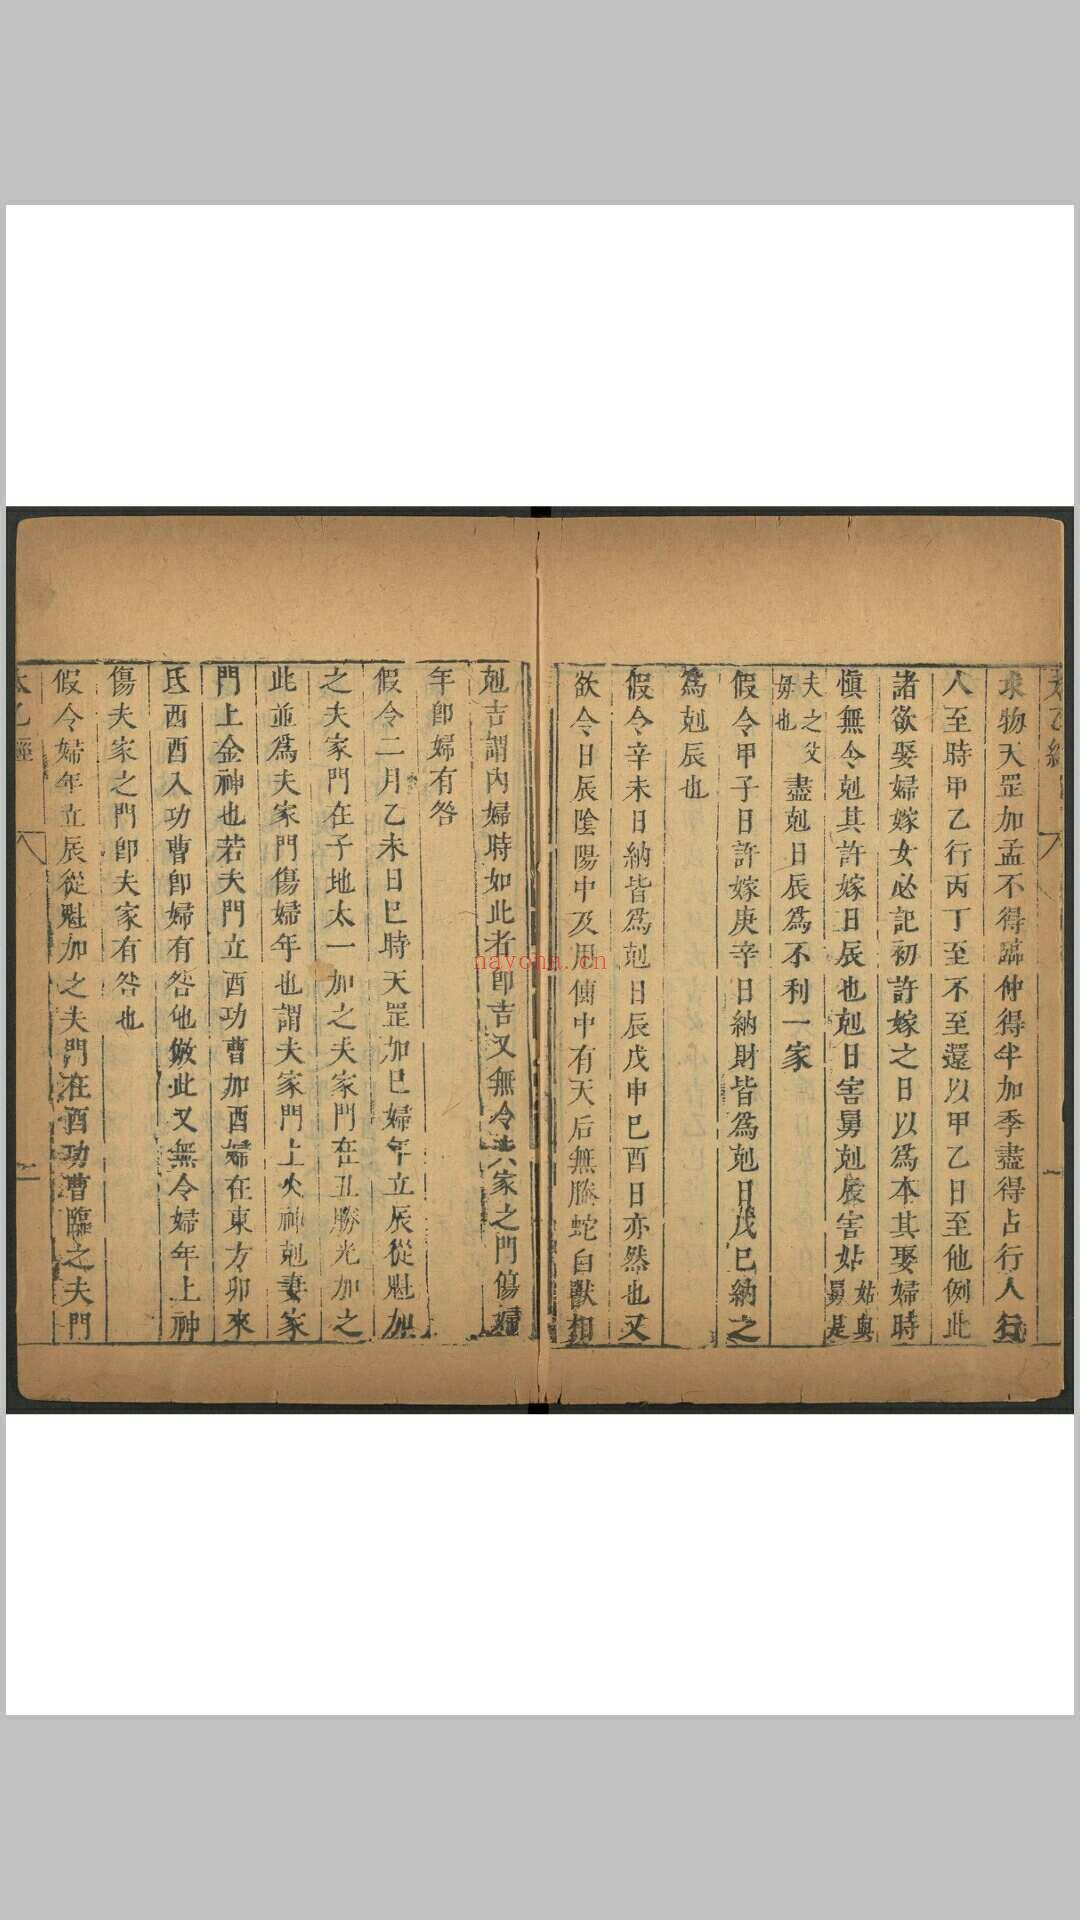 求物天罡加孟不得罡仲得半加季盡得占行人行
人至時甲乙行丙丁至不至還以甲乙日至他例此
諸欲娶婦嫁女必記初許嫁之日以為本其娶婦時
慎無令剋其許嫁日辰也剋日害舅剋辰害姑姑與舅是
夫之父母也盡剋日辰為不利一家
假令甲子日許嫁庚辛日納財皆為剋日戊巳納之
為剋辰也
假令辛未日納皆為剋日辰戊申巳酉日亦然也又
欲令日辰陰陽中及用傳中有天后無螣蛇白獸相
剋吉謂內婦時如此者即吉又無令夫家之門傷婦
年即婦有咎
假令二月乙未日巳時天罡加巳婦年立辰從魁加
之夫家門在子地太一加之夫家門在丑勝光加之
此並為夫家門傷婦年也謂夫家門上火神剋妻家
門上金神也若夫門立酉功曹加酉婦在東方卯來
氐酉酉入功曹即婦有咎他倣此又無令婦年上神
傷夫家之門即夫家有咎也
假令婦年立辰從魁加之夫門在酉功曹臨之夫門
太乙經
nayona.cn